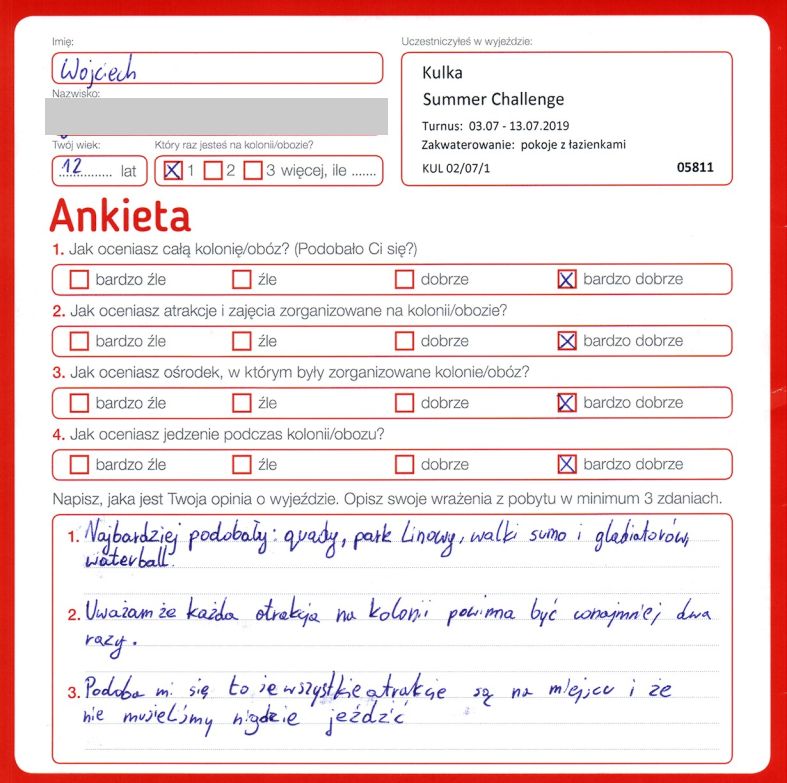 Imię:
Wojciech
Nazwisko:
Twój wiek:
12 lat
Który raz jesteś na kolonii/obozie?
1 2 3 więcej, ile .......
Uczestniczyłeś w wyjeździe:
Kulka
Summer Challenge
Turnus: 03.07 - 13.07.2019
Zakwaterowanie: pokoje z łazienkami
KUL 02/07/1 05811
Ankieta
1. Jak oceniasz całą kolonię/obóz? (Podobało Ci się?)
bardzo źle źle dobrze bardzo dobrze
2. Jak oceniasz atrakcje i zajęcia zorganizowane na kolonii/obozie?
bardzo źle źle dobrze bardzo dobrze
3. Jak oceniasz ośrodek, w którym były zorganizowane kolonie/obóz?
bardzo źle źle dobrze bardzo dobrze
4. Jak oceniasz jedzenie podczas kolonii/obozu?
bardzo źle źle dobrze bardzo dobrze
Napisz, jaka jest Twoja opinia o wyjeździe. Opisz swoje wrażenia z pobytu w minimum 3 zdaniach.
1. Najbardziej podobały: quady, park linowy, walki sumo i gladiatorów,
waterball.
2. Uważam że każda atrakcja na kolonii powinna być conajmniej dwa
razy.
3. Podoba mi się to że wszystkie atrakcje są na miejscu i że
nie musieliśmy nigdzie jeździć